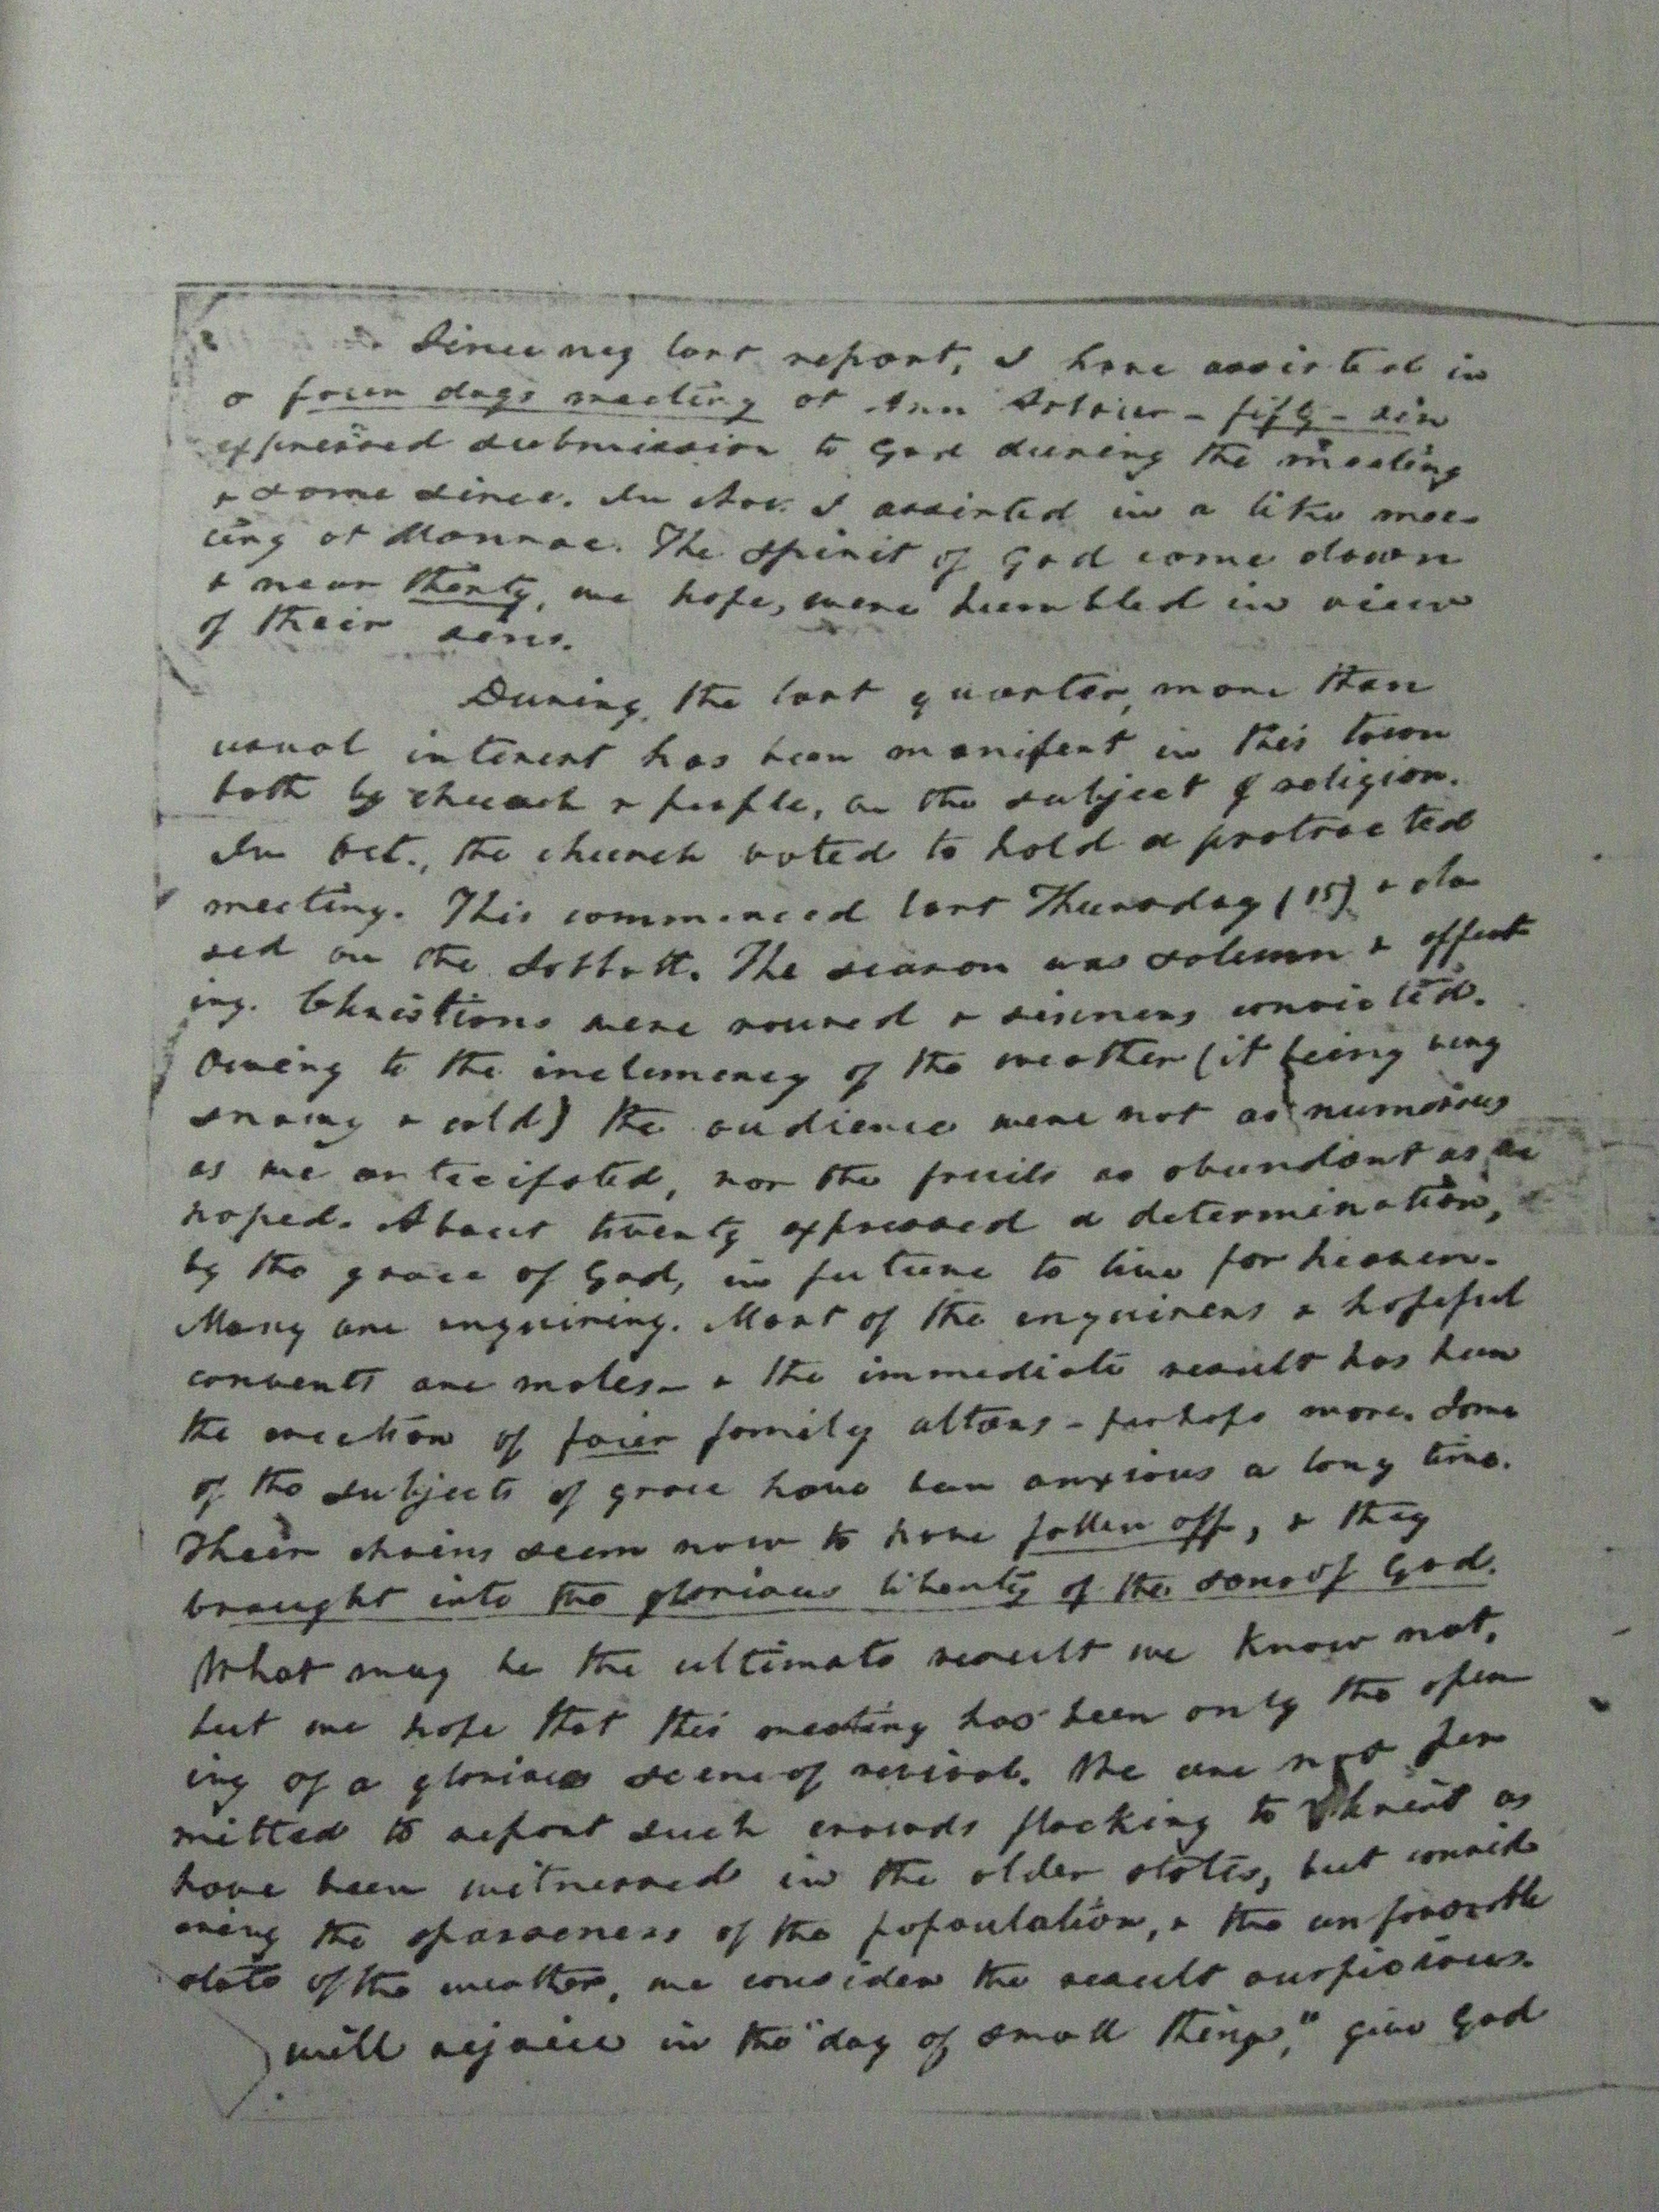 Since my last report, I have assisted in
a four days meeting at Ann Arbour - fifty-six
expressed submission to God during the meeting
& some since. In Nov. I assisted in a like mee-
ting at Monroe. The spirit of God came down
& near thirty, we hope, were humbled in view
of their sins.
During the last quarter, more than
usual interest has been manifest in this town
both by church & people, on the subject of religion.
In Oct., the church voted to hold a protracted
meeting. This commenced last Thursday (15) & clo
sed on the Sabbath. The season was solemn & affect
ing. Christians were roused & sinners convicted.
Owing to the inclemency of the weather (it being very
snowy & cold) the audience were not as numerous
as we anticipated, nor the fruits so abundant as we
hoped. About twenty expressed a determination,
by the grace of God, in future to live for heaven.
Many are enquiring. Most of the enquirers & hopeful
converts are males - & the immediate result has been
the erection of four family altars - perhaps more. Some
of the subjects of grace have been anxious a long time.
Their chains seem now to have fallen off, & they
brought into the glorious liberty of the sons of God.
What may be the ultimate result we know not,
but we hope that this meeting has been only the open
ing of a glorious scene of revival. We are not per
mitted to report such crowds flocking to Christ as
have been witnessed in the older states, but consid
ering the sparseness of the population, & the unfavorable
state of the weather, we consider the result auspicious.
will rejoice in the "day of small things," give God